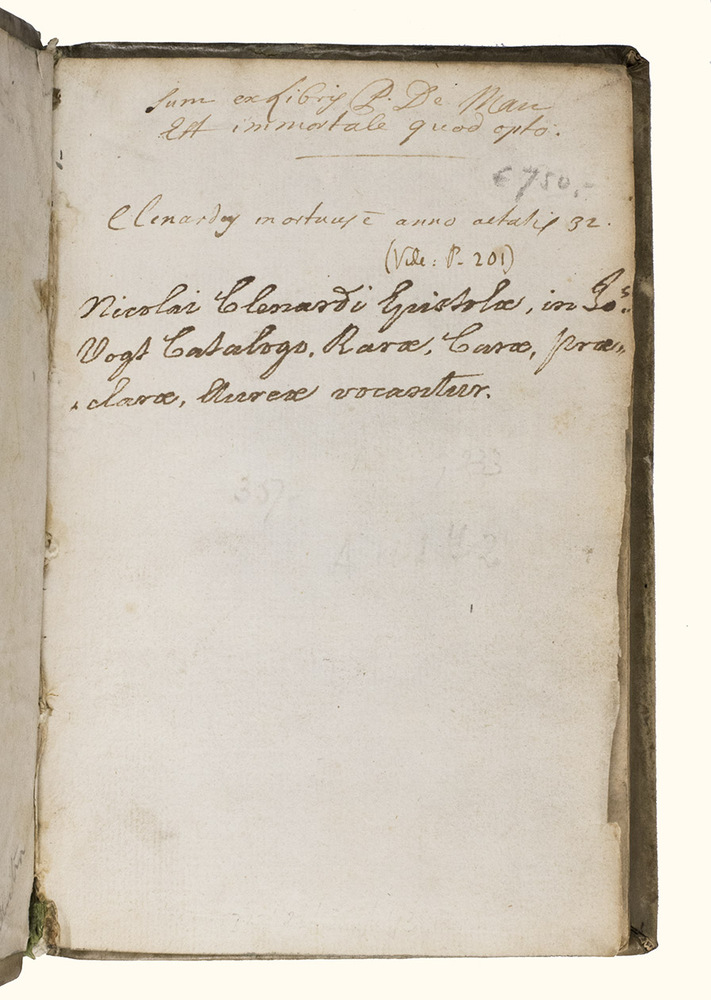 Sum ex Libris P. De Man
Est immortale quod opto.
€ 750,-
Clenardus mortuus ē anno aetatis 32.
(Vide: P. 201)
Nicolai Clenardi Epistolæ, in Joˢ:
Vogt Catalogo, Raræ, Caræ, præ„
„claræ, Aureæ vocantur.
357